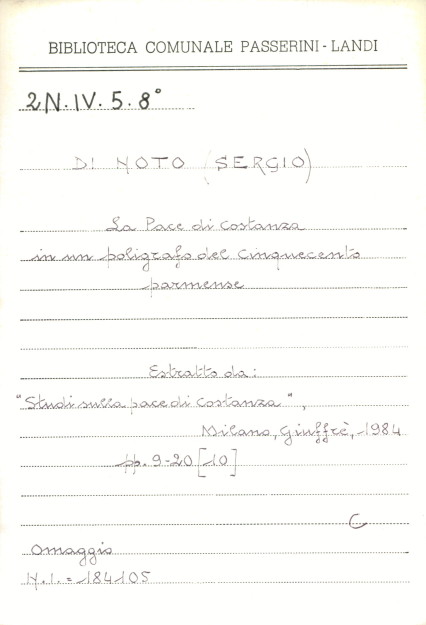 BIBLIOTECA COMUNALE PASSERINI - LANDI
2N. IV. 5. 8°
DI NOTO (SERGIO)
La Pace di Costanza
in un poligrafo del Cinquecento
parmense
Estratto da:
"Studi sulla pace di Costanza",
Milano, Giuffrè, 1984
pp. 9-20 [10]
C
Omaggio
N.I. = 184105